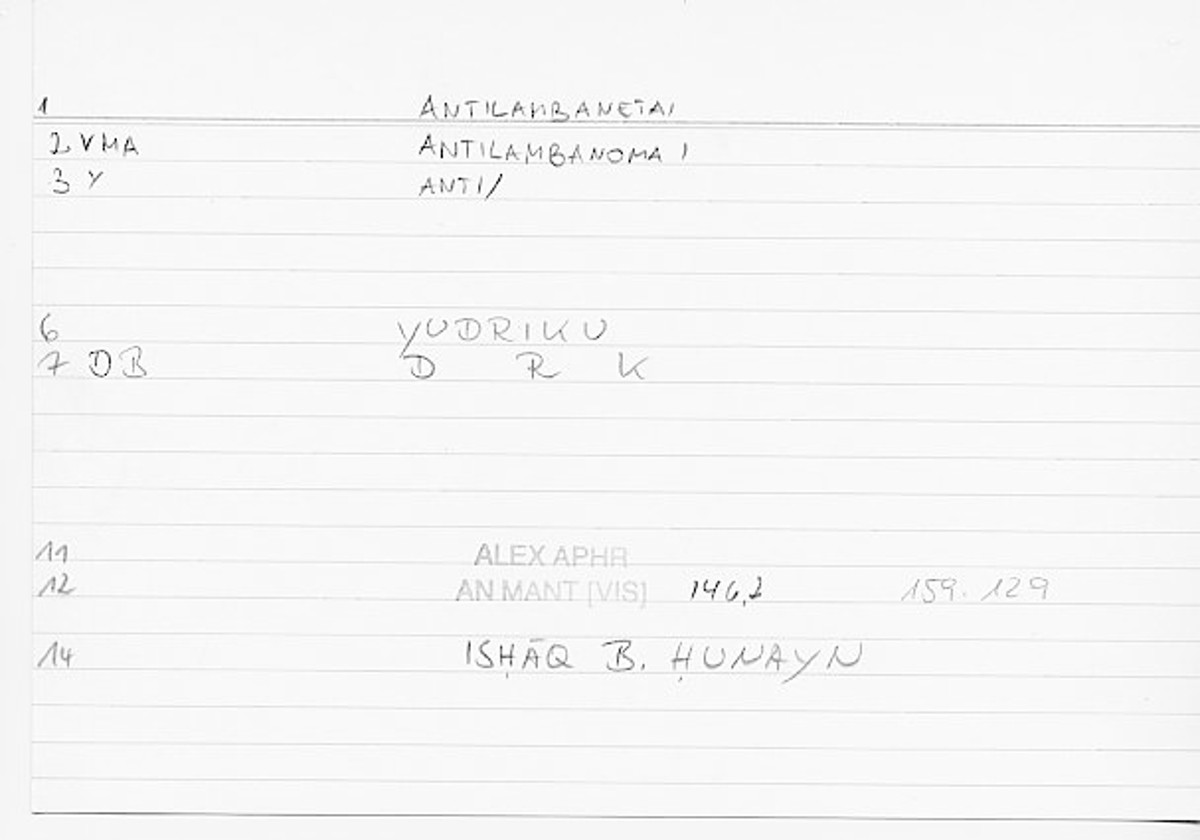 1 ANTILAMBANETAI
2 VMA ANTILAMBANOMAI
3 Y ANTI/
6 YUDRIKU
7 OB D R K
11 ALEX APHR
12 AN MANT [VIS] 146,2 159.129
14 ISḤĀQ B. ḤUNAYN